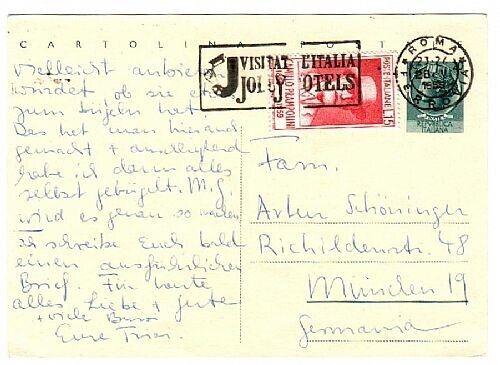 CARTOLINA POST
VISITATE L'ITALIA
JOLLY HOTELS
POSTE ITALIANE L.15
CAMILLO PRAMPOLINI
1859 1959
ROMA
FERROVIA
REPUBBLICA
ITALIANA
Vielleicht
würdet ob sie
zum bügeln hat.
Das hat man hierauf
gemacht +
habe ich dann alles
selbst gebügelt. M.G.
wird es genau so machen
ich schreibe Euch bald
einen ausführlichen
Brief. Für heute
alles Liebe + Gute
+ viele Bussi
Eure
Fam.
Artur Schöninger
Richildenstr. 48
München 19
Germania